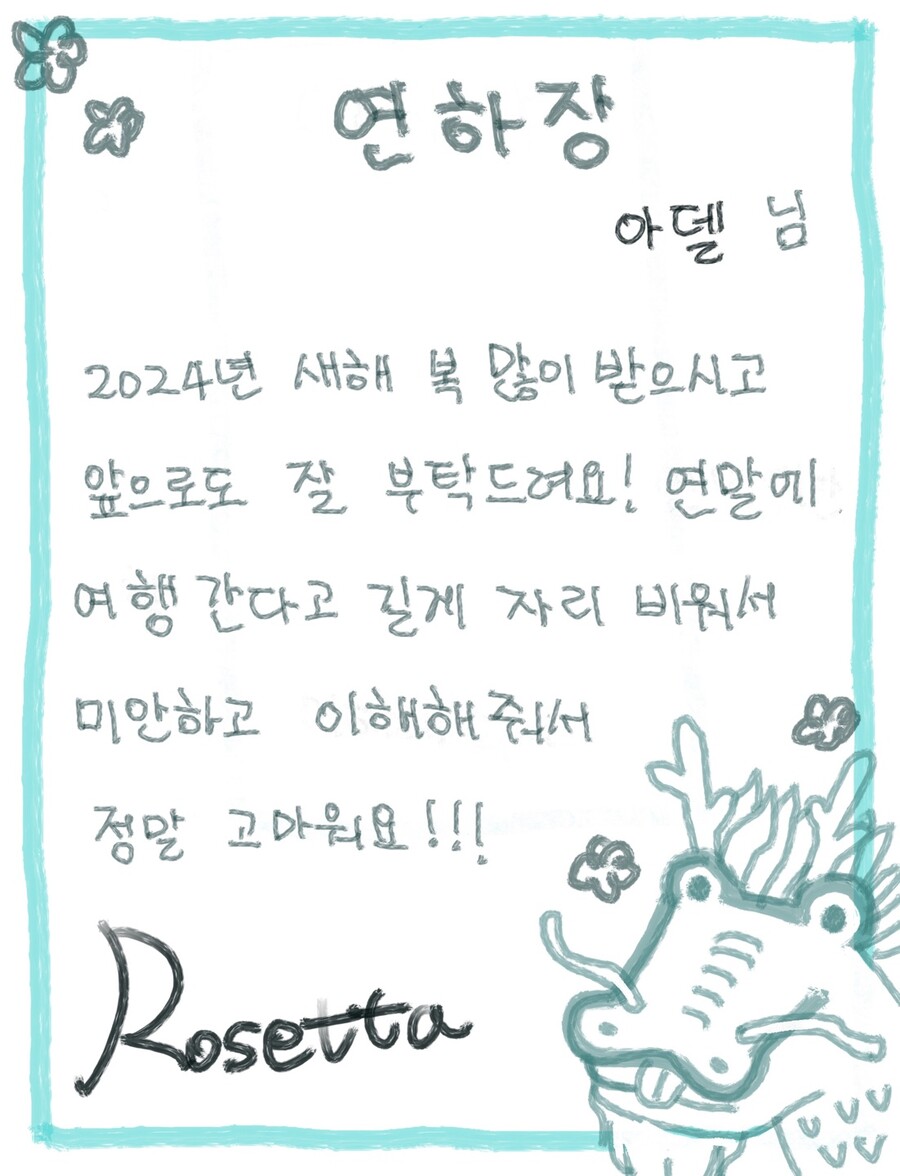 연하장
아델 님
2024년 새해 복 많이 받으시고
앞으로도 잘 부탁드려요! 연말에
여행 간다고 길게 자리 비워서
미안하고 이해해줘서
정말 고마워요!!!
Rosetta